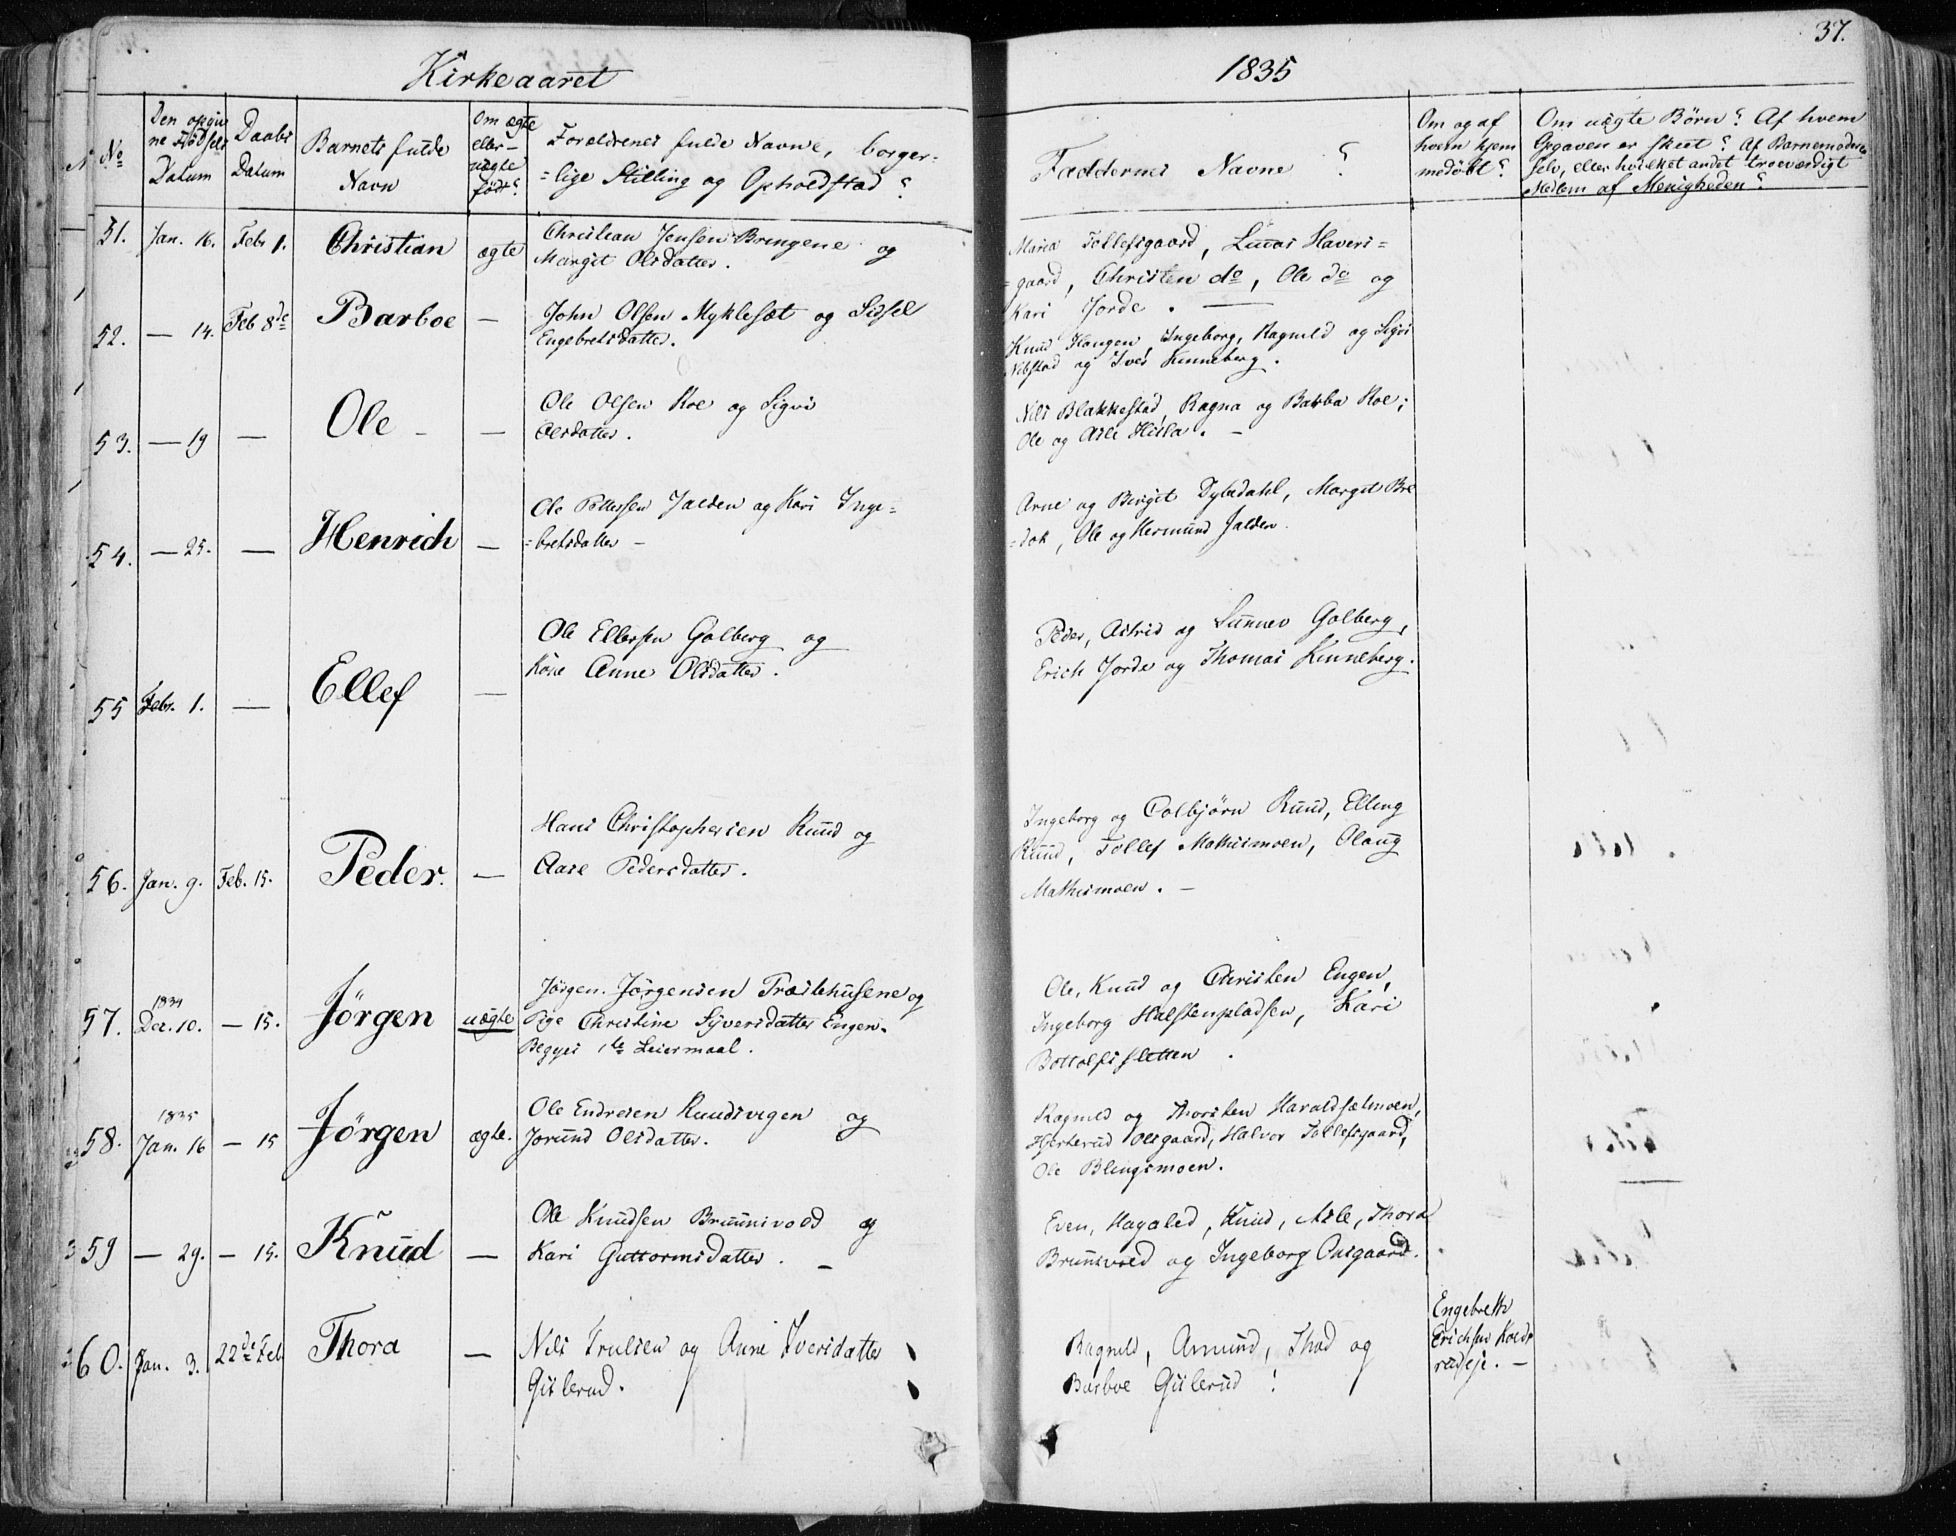 37.
Kirkeaaret 1835
No
Den opgiv
ne Fødsels
Datum
Daabs
Datum
Barnets fulde
Navn
Om ægte
eller
uægte
født?
Forældrenes fulde Navne, borger-
=lige Stilling og Opholdstad?
Faddernes Navne ?
Om og af
hvem hjem
medøbt?
Om uægte Børn? Af hvem
Opgaven er skeet? Af Barnemoderen
selv, eller hvilket andet troeværdigt
Medlem af Menigheden?
51. Jan. 16. Febr 1. Christian ægte
Christian Jensen Bringene og
Margit Olsdatter.
Maria Tollefsgaard, Haveris=
=gaard, Christen do, Ole do og
Kari Jorde.
52. — 14. Feb 8de Barboe —
John Olsen Myklesæt og Sidsel
Engebretsdatter.
Knud Haugen, Ingeborg, Ragnild og Sigri
Nibstad og Iver Kinneberg.
53. — 19 — Ole — —
Ole Olsen Roe og Sigri
Olsdatter.
Nils Blakkestad, Ragna og Barba Roe;
Ole og Asle Hilla. —
54. — 25. — Henrich —
Ole Pettersen Jalden og Kari Inge=
=bretsdatter —
Arne og Birgit Dyledahl, Margit Bre
=dok, Ole og Hermund Jalden.
55 Febr. 1. — Ellef —
Ole Ellefsen Golberg og
Kone Anne Olsdatter.
Peder, Astrid og Sunnev Golberg,
Erich Jorde og Thomas Kinneberg.
56. Jan. 9. Feb. 15. Peder. —
Hans Christophersen Ruud og
Aase Pedersdatter.
Ingeborg og Colbjørn Ruud, Elling
Ruud, Tollef Mathismoen, Olaug
Mathismoen. —
57. 1834
Dec. 10. — 15. Jørgen uægte
Jørgen Jørgensen Træstehusene og
Pige Christine Syversdatter Engen.
Begges 1te Leiermaal.
Ole, Knud og Christen Engen,
Ingeborg Halstenspladsen, Kari
Bottolfssletten.
58. 1835
Jan. 16 — 15 Jørgen ægte.
Ole Endresen Ruudsvegen og
Jorund Olsdatter.
Ragnild og Thorsten Haraldsætmoen,
Olsgaard, Halvor Tollefsgaard,
Ole Blingsmoen.
59 — 29. — 15. Knud —
Ole Knudsen Bruunsvold og
Kari Guttormsdatter. —
Even, Hagaled, Knud, Asle, Thora
Brunsvold og Ingeborg Onsgaard.
60. Jan. 3. 22de Feb. Thora —
Nils Trulsen og Anne Iversdatter
Gulerud.
Ragnild, Amund, Thod og
Barboe Gulerud.
Engebreth
Erichsen
rudeje. —